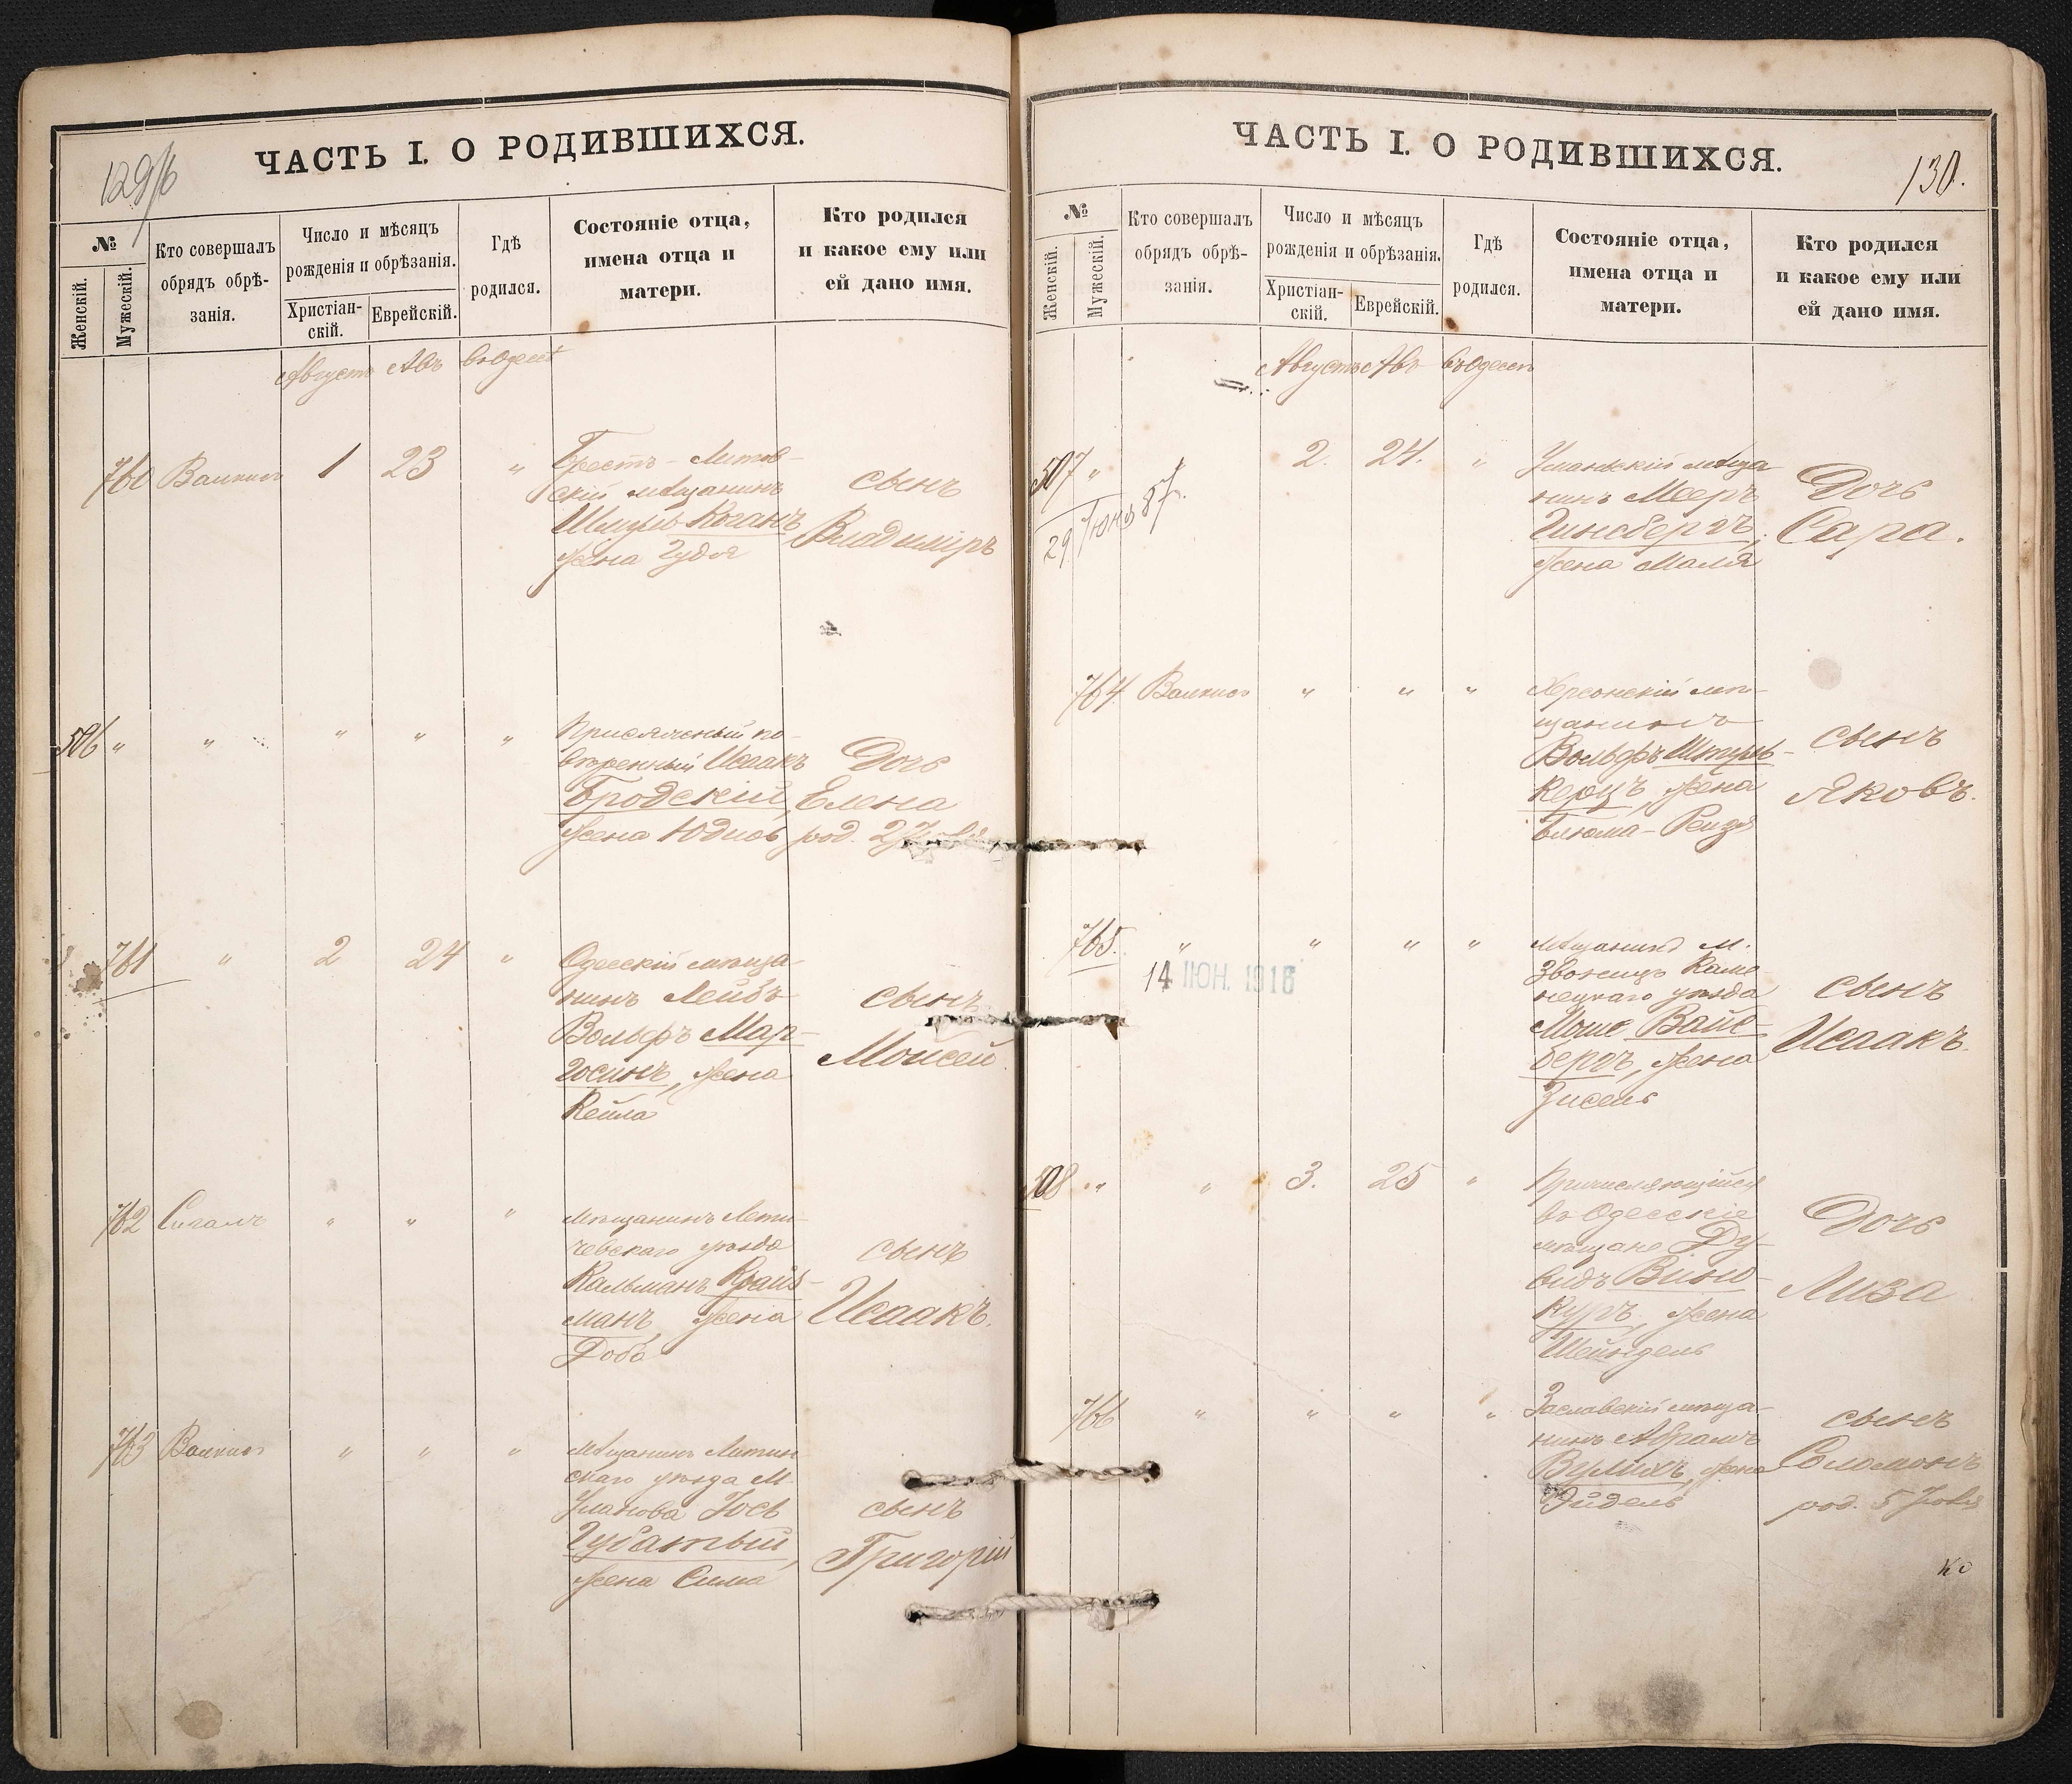 ЧАСТЬ I. О РОДИВШИХСЯ.
№
Женскій.
Мужескій.
Кто совершалъ
обрядъ обрѣ-
занія.
Число и мѣсяцъ
рожденія и обрѣзанія.
Христіан-
скій.
Еврейскій.
Гдѣ
родился.
Состояніе отца,
имена отца и
матери.
Кто родился
и какое ему или
ей дано имя.
Августъ Авъ въ Одессѣ
760 1 23 "
Брестъ-Литов-
скій мѣщанинъ
Коганъ
жена Гудя
сынъ
Владиміръ
506 " " " " "
Присяжный по-
вѣренный Исаакъ
Бродскій,
жена Юдиѳь
Дочь
Елена
род. 27
761 " 2 24 "
Одесскій мѣща-
нинъ Лейбъ
Вольфъ Мар-
госинъ, жена
Кейла
сынъ
Моисей
762 Сигалъ " " "
Мѣщанинъ Лети-
чевскаго уѣзда
Кальманъ Крайз-
манъ жена
Доба
сынъ
Исаакъ.
763 " " "
Мѣщанинъ Литин
скаго уѣзда М.
Уланова Іось
Губатый,
жена Сима
сынъ
Григорій
ЧАСТЬ I. О РОДИВШИХСЯ.
130.
№
Женскій.
Мужескій.
Кто совершалъ
обрядъ обрѣ-
занія.
Число и мѣсяцъ
рожденія и обрѣзанія.
Христіан-
скій.
Еврейскій.
Гдѣ
родился.
Состояніе отца,
имена отца и
матери.
Кто родился
и какое ему или
ей дано имя.
Августъ Авъ въ Одессѣ
507 " 2. 24. "
Уманьскій мѣща
нинъ Мееръ
Гинсбергъ,
жена Маля
Дочь
Сара.
764 " " "
Херсонскій мѣ-
щанинъ
Вольфъ Штуль-
керцъ, жена
Блюма-Рейзя
сынъ
Яковъ.
765. " " " "
14 ІЮН. 1916
Мѣщанинъ м.
Звонецъ Каме
нецкаго уѣзда
Моше Вайс-
бергъ, жена
Зисель
сынъ
Исаакъ.
508 " " 3. 25 "
Причисляющійся
въ Одесскіе
мѣщане Ду-
видъ Вино-
куръ, жена
Шейндель
Дочь
Лиза
766 " " " "
Заславскій мѣща-
нинъ Абрамъ
жена
Эйдель
сынъ
Соломонъ
род. 5